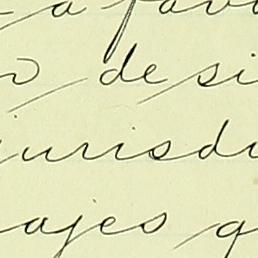 a favo
o de si
jurisdi
ajes q